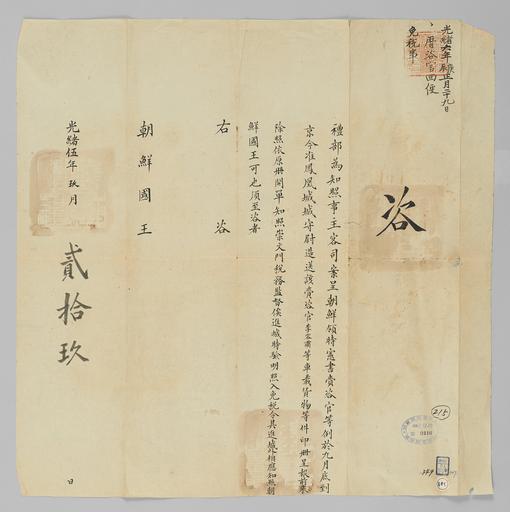 光緒六年庚辰正月二十九日
曆咨官回便
免稅事
咨
禮部為知照事主客司案呈朝鮮領時憲書賫咨官等例於九月底到
京今准鳳凰城城守尉造送該賫咨官李容肅等車載貨物等件印冊呈報前來
除照依原冊開單知照崇文門稅務監督俟進城時驗明照入免稅令其進城外相應知照朝
鮮國王可也須至咨者
右咨
朝鮮國王
光緒伍年玖月
貳拾玖
日
215